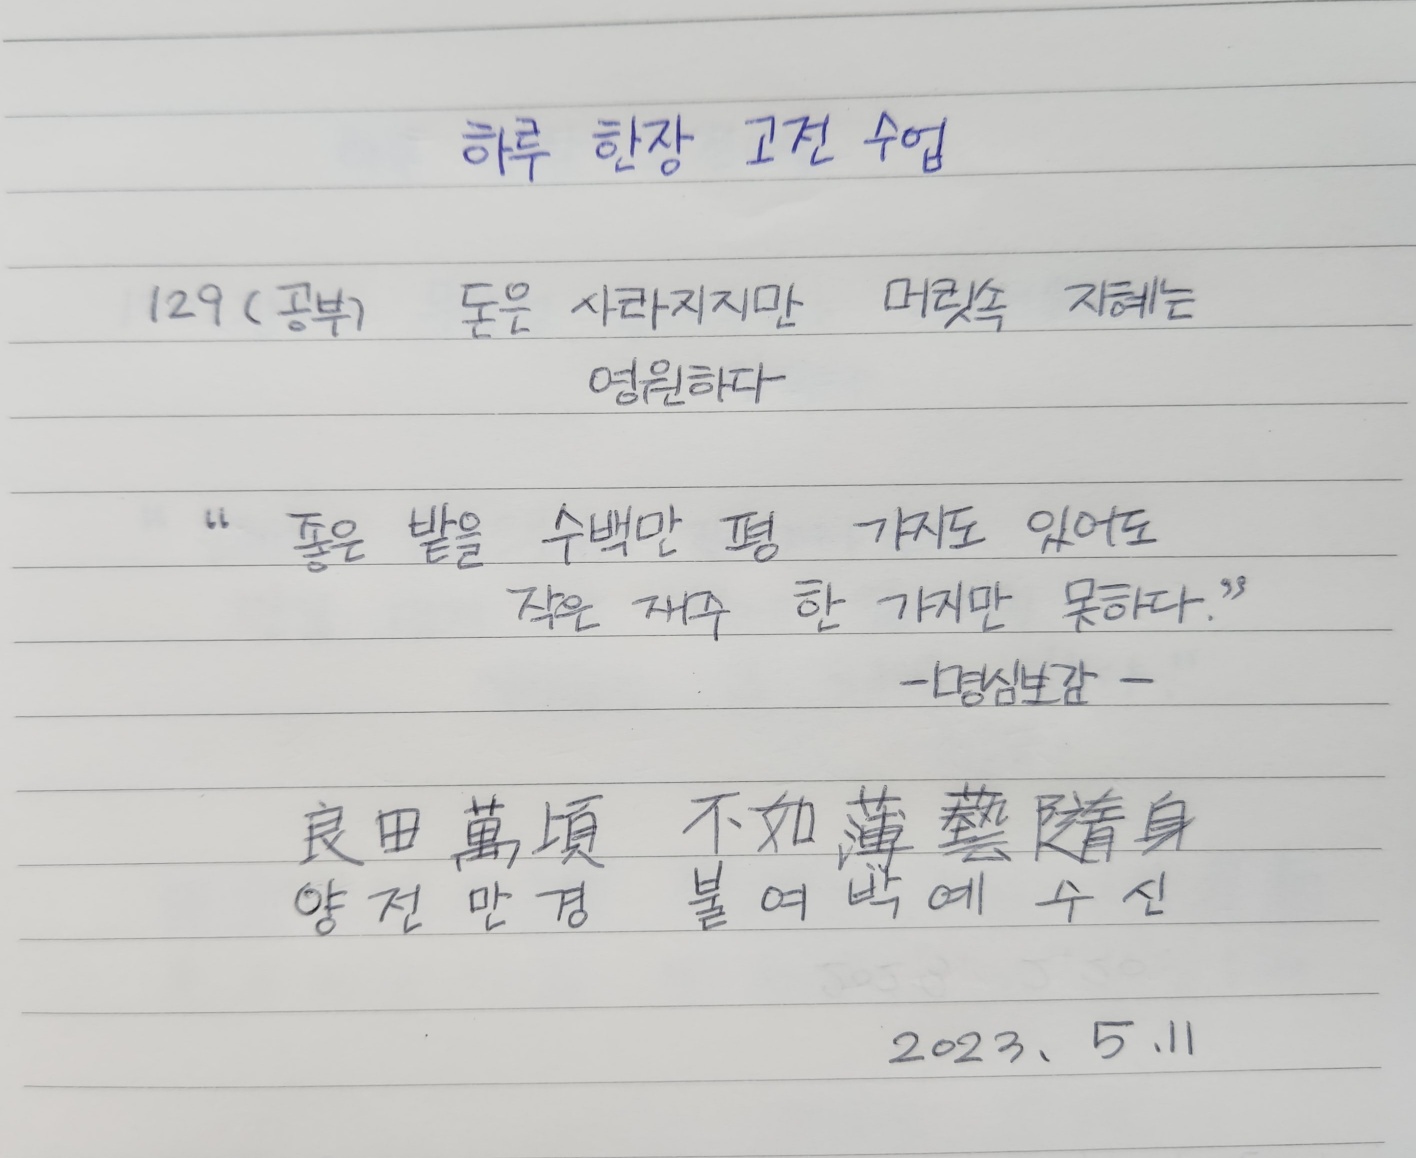 하루 한장 고전 수업
129 (공부) 돈은 사라지지만 머릿속 지혜는
영원하다
“ 좋은 밭을 수백만 평 가지고 있어도
작은 재주 한 가지만 못하다.”
- 명심보감 -
良田萬頃 不如薄藝隨身
양전만경 불여박예수신
2023. 5.11